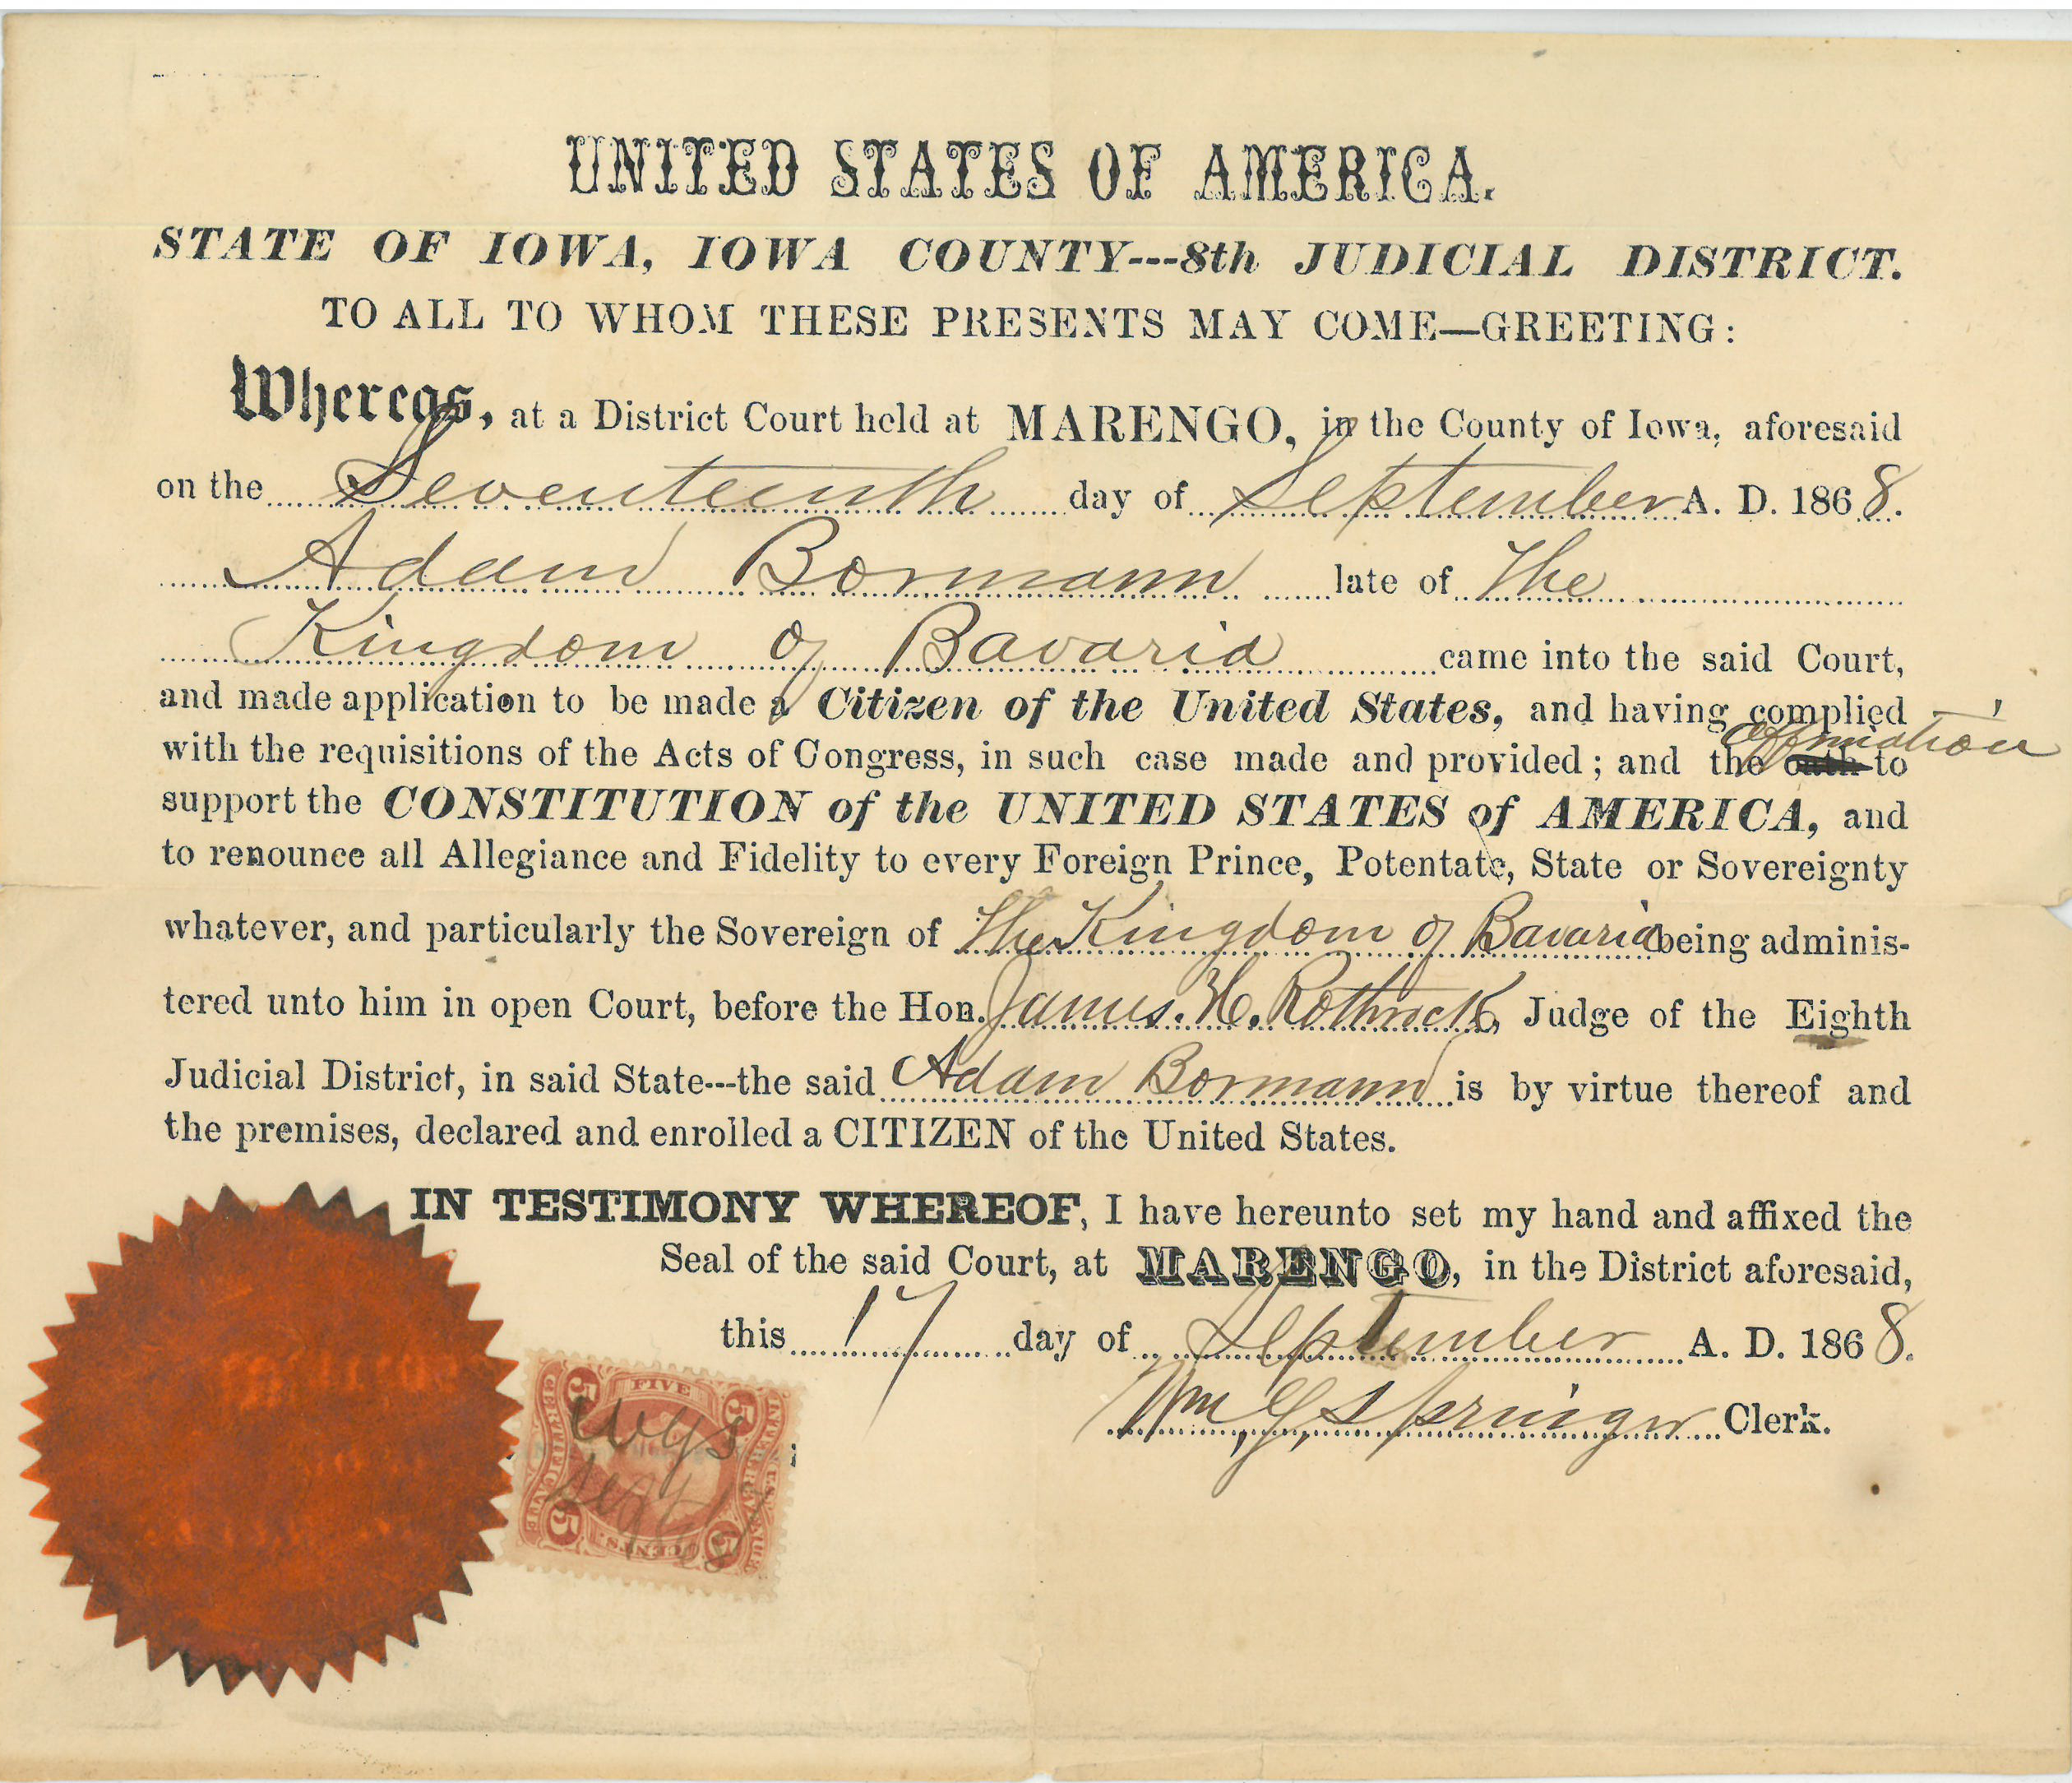 UNITED STATES OF AMERICA.
STATE OF IOWA, IOWA COUNTY---8th JUDICIAL DISTRICT.
TO ALL TO WHOM THESE PRESENTS MAY COME—GREETING:
Whereas, at a District Court held at MARENGO, in the County of Iowa, aforesaid
on the Seventeenth day of September A. D. 1868.
Adam Bormann late of The
Kingdom of Bavaria came into the said Court,
and made application to be made a Citizen of the United States, and having complied
Affirmation
with the requisitions of the Acts of Congress, in such case made and provided; and the oath to
support the CONSTITUTION of the UNITED STATES of AMERICA, and
to renounce all Allegiance and Fidelity to every Foreign Prince, Potentate, State or Sovereignty
whatever, and particularly the Sovereign of The Kingdom of Bavaria being adminis-
tered unto him in open Court, before the Hon. James. H. Rothrock, Judge of the Eighth
Judicial District, in said State---the said Adam Bormann is by virtue thereof and
the premises, declared and enrolled a CITIZEN of the United States.
IN TESTIMONY WHEREOF, I have hereunto set my hand and affixed the
Seal of the said Court, at MARENGO, in the District aforesaid,
this 17 day of September A. D. 1868.
Wm, G, Springer Clerk.
5 FIVE 5
INTER. REVENUE
CERTIFICATE
WGS
5 CENTS. 5